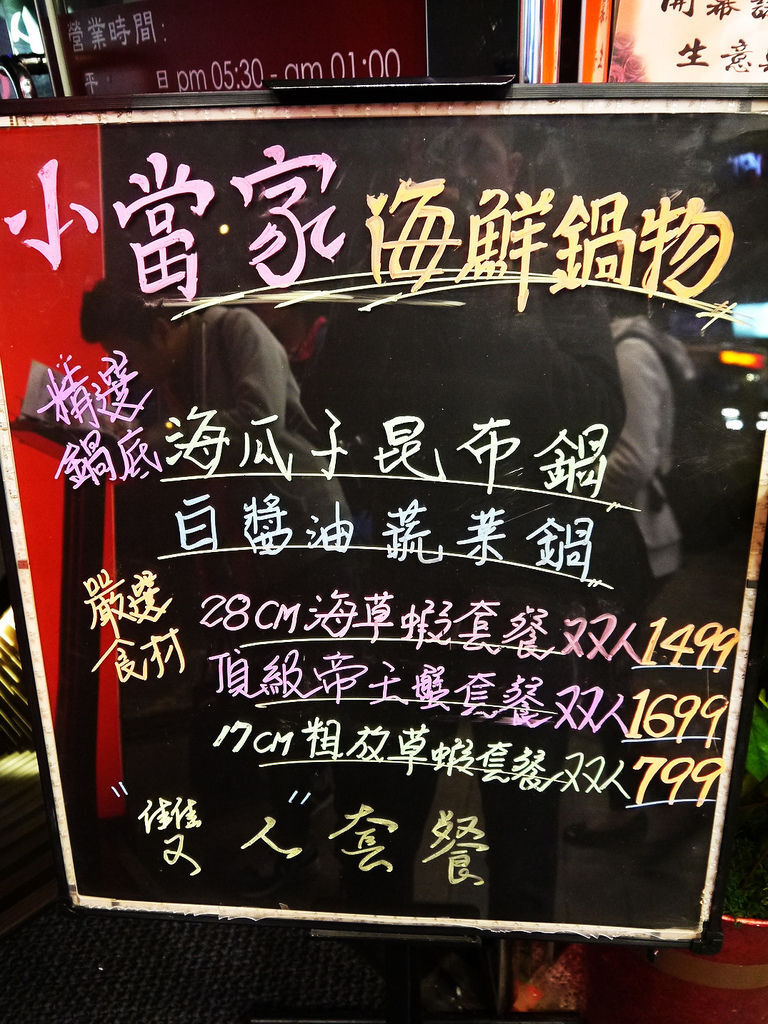 營業時間:
平 日 pm 05:30 - am 01:00
開幕誌
生意興
小當家海鮮鍋物
精選
鍋底
海瓜子昆布鍋
白醬油蔬菜鍋
嚴選
食材
28CM海草蝦套餐双人1499
頂級帝王蟹套餐双人1699
17CM粗放草蝦套餐双人799
"雙人"套餐